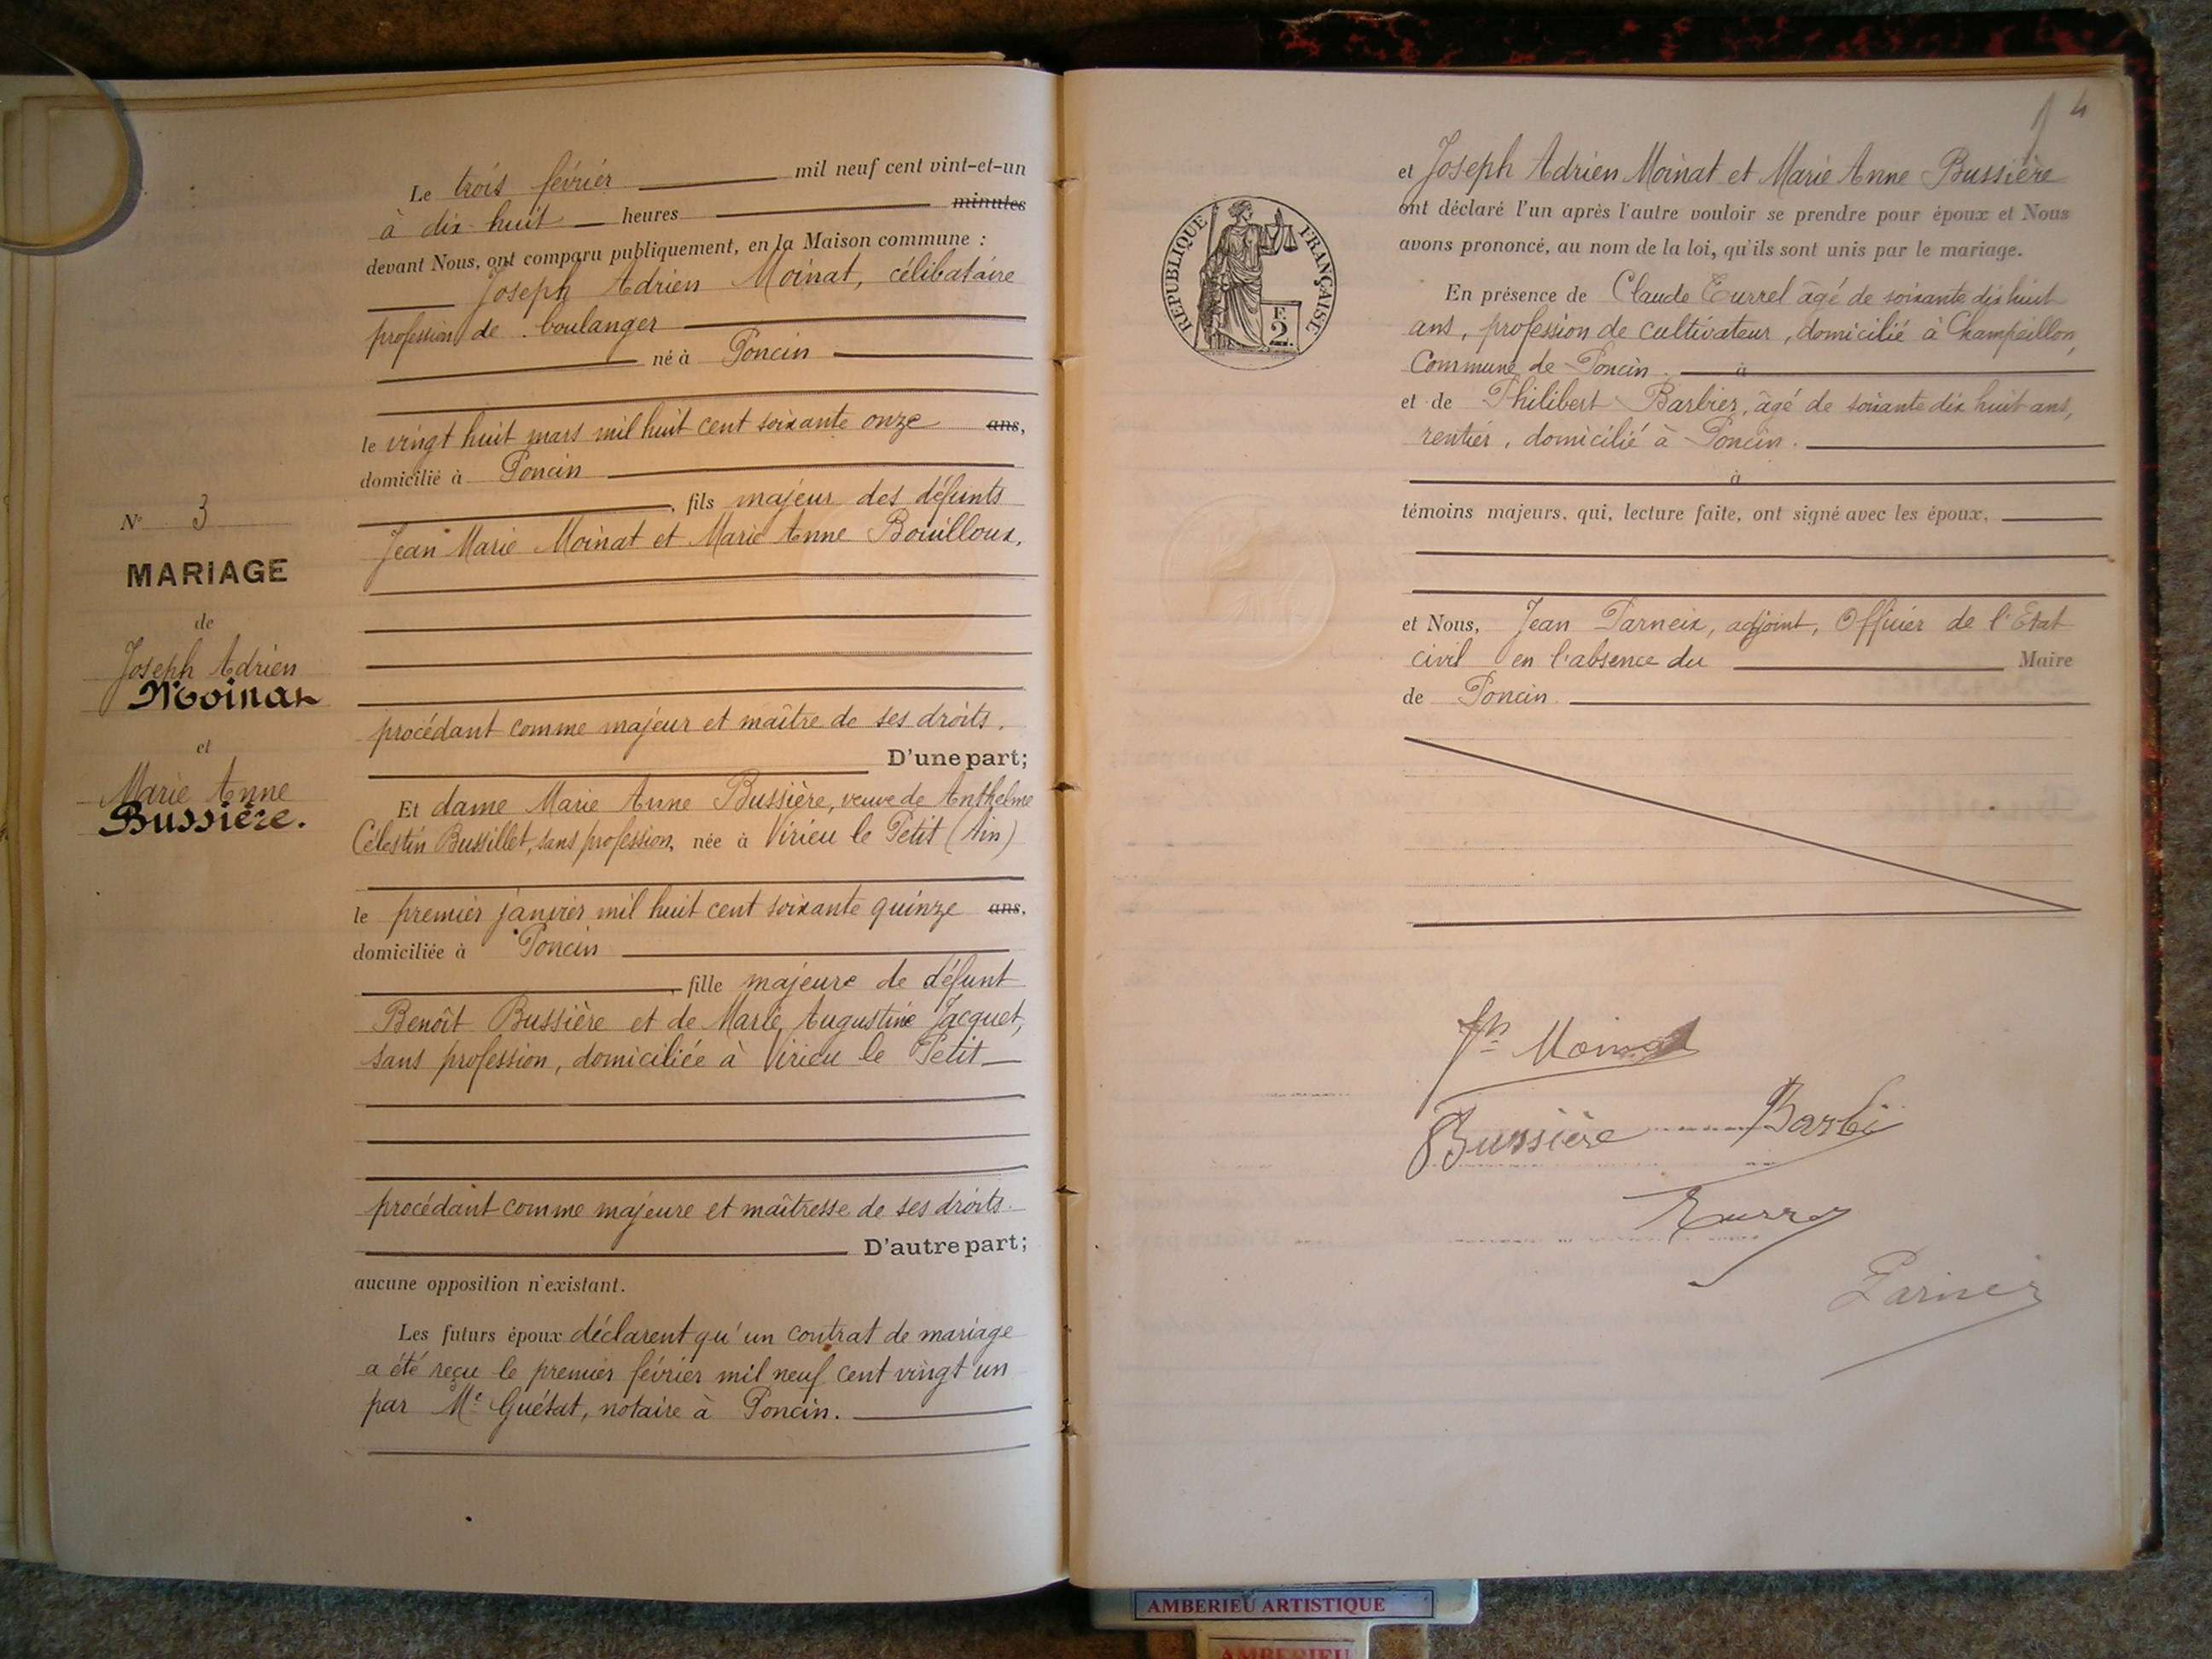 Le trois février mil neuf cent vint-et-un
à dix-huit heures minutes
devant Nous, ont comparu publiquement, en la Maison commune :
Joseph Adrien Moinat, célibataire
profession de boulanger
né à Poncin
le vingt huit mars mil huit cent soixante onze ans,
domicilié à Poncin
, fils majeur des défunts
Jean Marie Moinat et Marie Anne Bouilloux,
procédant comme majeur et maître de ses droits.
D'une part;
Et dame Marie Anne Bussière, veuve de Anthelme
Célestin Bussillet, sans profession, née à Virieu le Petit (Ain)
le premier janvier mil huit cent soixante quinze ans,
domiciliée à Poncin
, fille majeure de défunt
Benoît Bussière et de Marie Augustine Jacquet,
sans profession, domiciliée à Virieu le Petit
procédant comme majeure et maîtresse de ses droits.
D'autre part;
aucune opposition n'existant.
Les futurs époux déclarent qu'un contrat de mariage
a été reçu le premier février mil neuf cent vingt un
par Me Guétat, notaire à Poncin.
No 3
MARIAGE
de
Joseph Adrien
Moinat
et
Marie Anne
Bussière.
4
RÉPUBLIQUE FRANÇAISE
2F.
et Joseph Adrien Moinat et Marie Anne Bussière
ont déclaré l'un après l'autre vouloir se prendre pour époux et Nous
avons prononcé, au nom de la loi, qu'ils sont unis par le mariage.
En présence de Claude Turrel âgé de soixante dix huit
ans, profession de cultivateur, domicilié à Champeillon,
Commune de Poncin. à
et de Philibert Barbier, âgé de soixante dix huit ans,
rentier, domicilié à Poncin.
à
témoins majeurs, qui, lecture faite, ont signé avec les époux,
et Nous, Jean Parneix, adjoint, Officier de l'Etat
civil en l'absence du Maire
de Poncin
Moinat
Bussière Barbi
Turrel
Parneix
AMBERIEU ARTISTIQUE
AMBERIEU